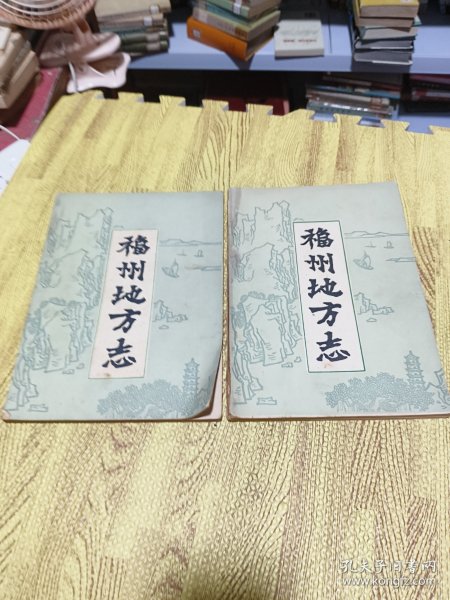 福州地方志
福州地方志
孔夫子旧书网
www.kongfz.com